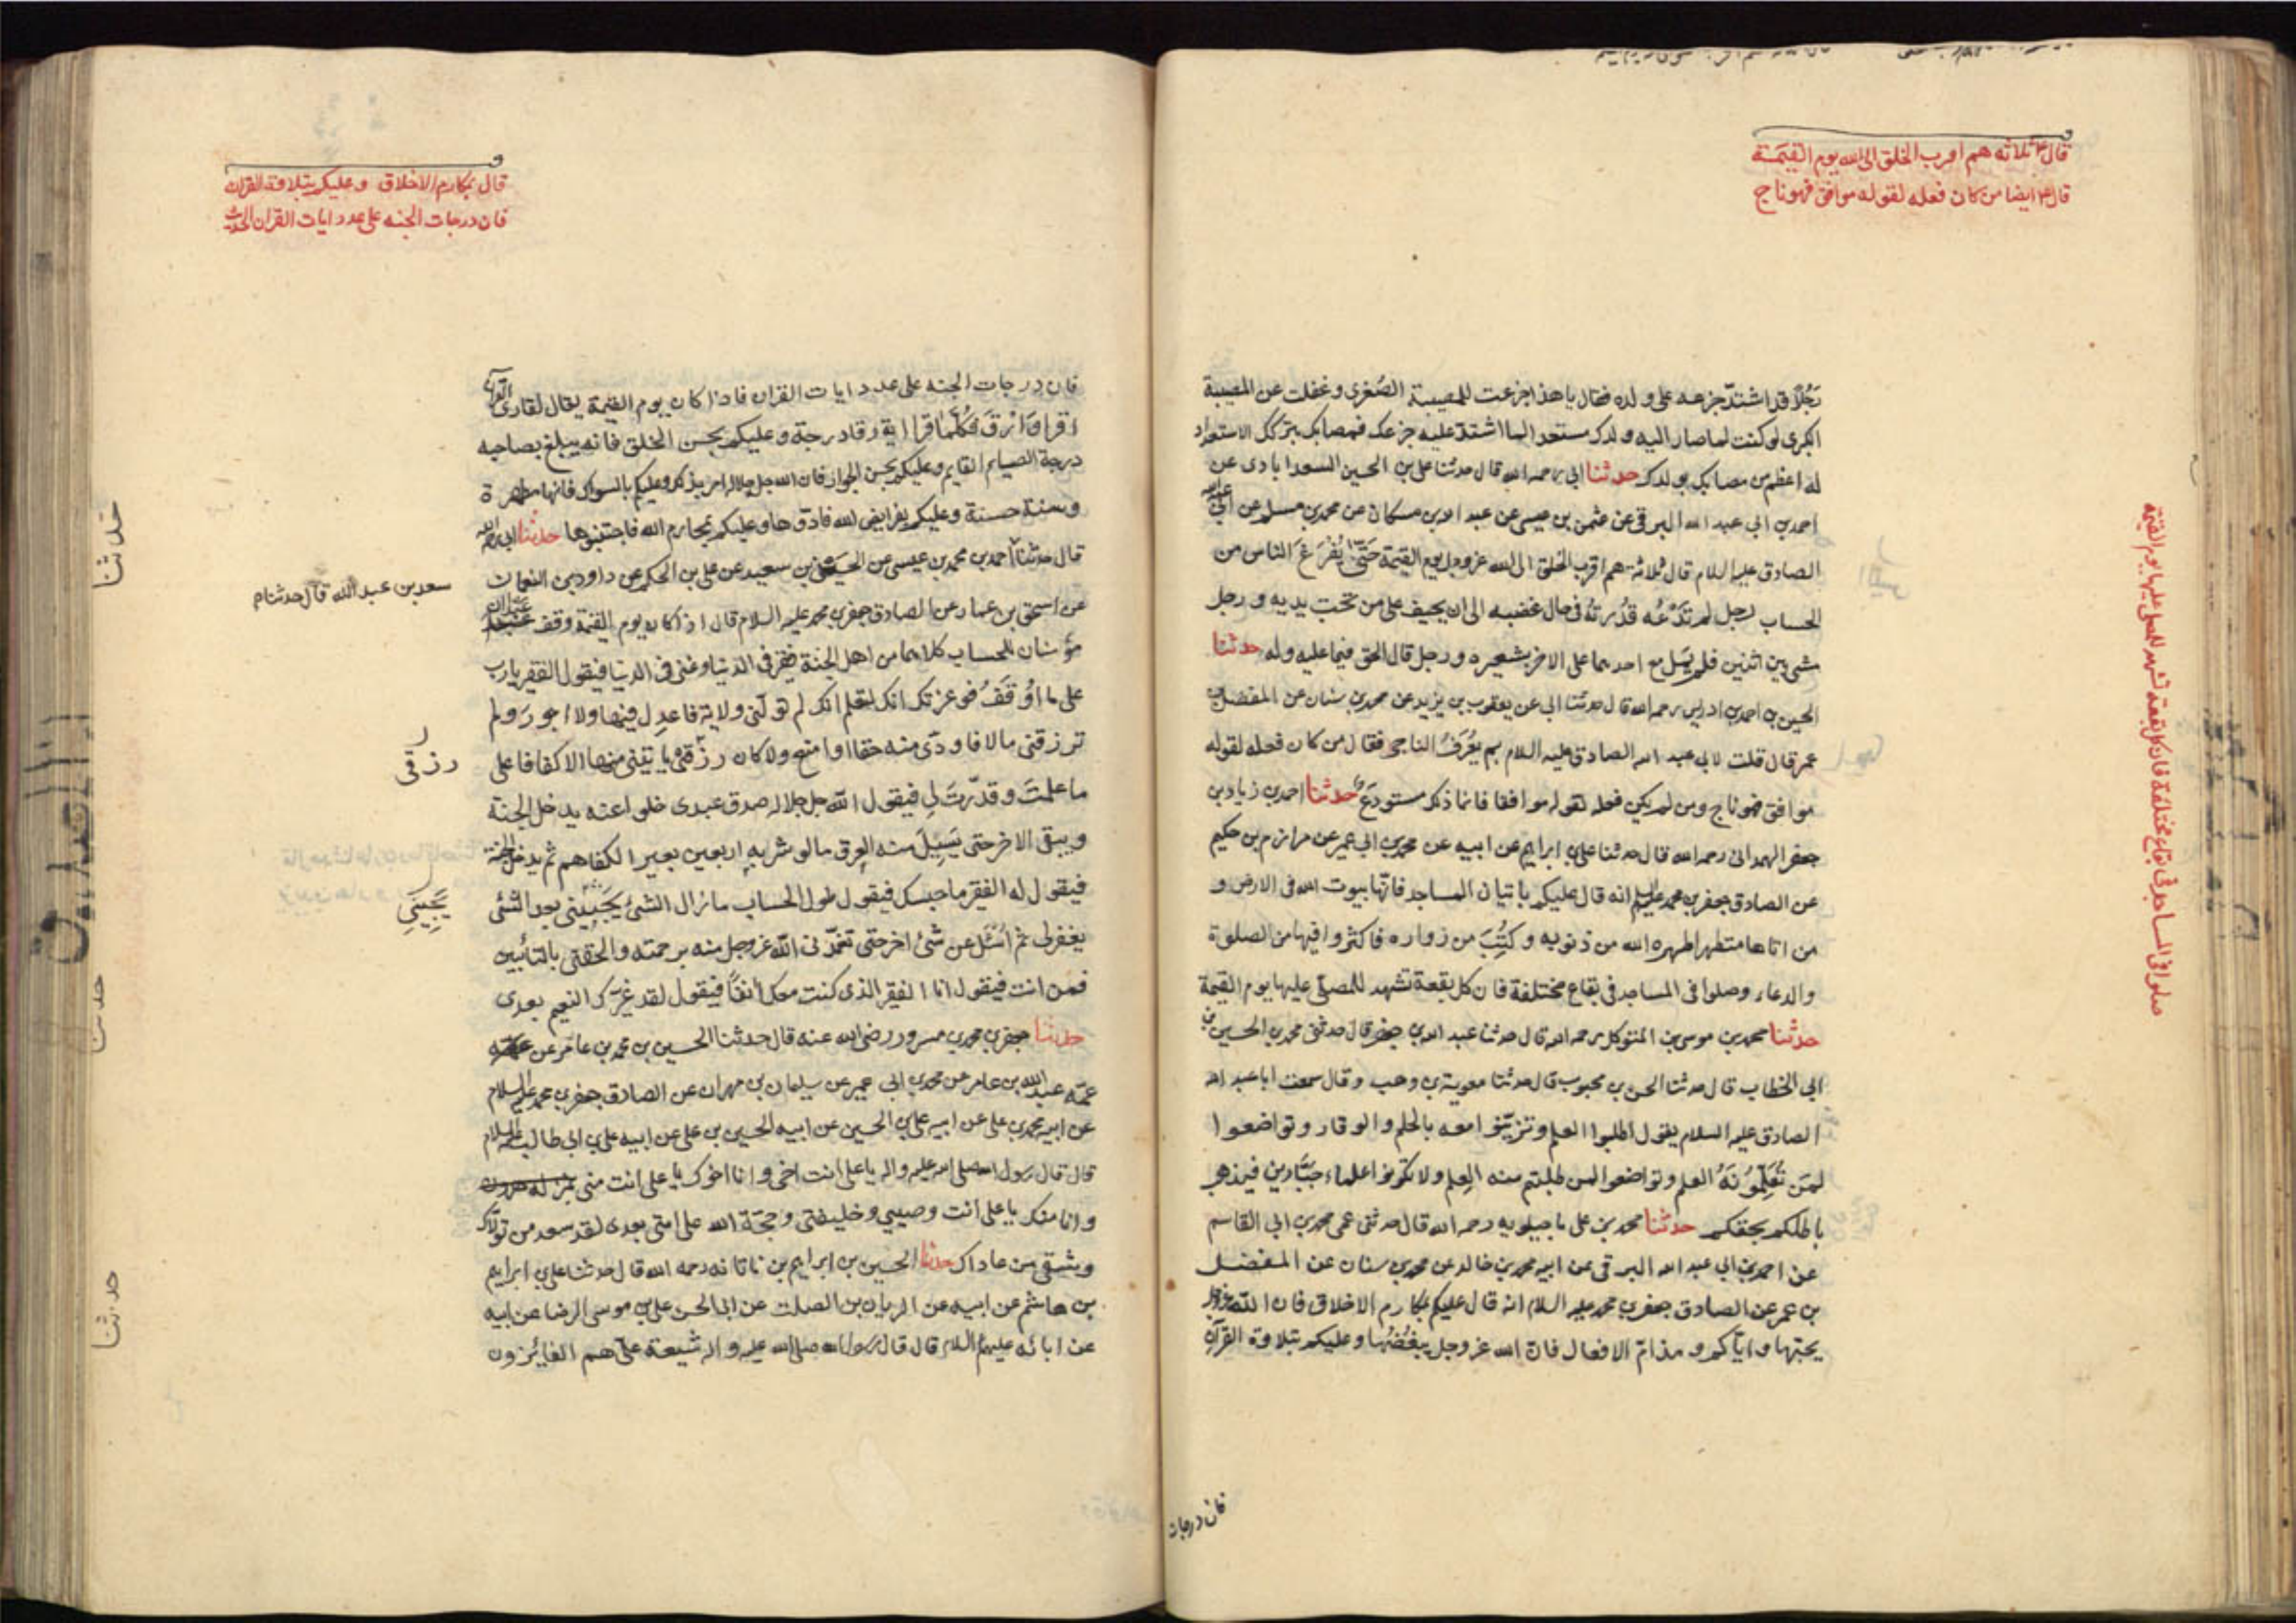 قال ع ثلاثه هم اقرب الخلق الى الله يوم القيمة
قال ع ايضا من كان فعله لقوله موافق فهو ناج
صلوا فى المساجد فى بقاع مختلفة فان كل بقعة تشهد للمصلى عليها يوم القيمة
رَجُلاً قد اشتدّ جزعه على ولده فقال يا هذا جزعت للمصيبة الصُغرى وغفلت عن المصيبة
الكبرى لو كنت لما صار اليه ولدك مستعدا لما اشتد عليه جزعك فمصابك بتركك الاستعداد
له اعظم من مصابك بولدك حدثنا ابي رحمه الله قال حدثنا على بن الحسين السعدابادى عن
احمد بن ابي عبد الله البرقى عن عثمن بن عيسى عن عبد الله بن مسكان عن محمد بن مسلم عن ابي عبد الله
الصادق عليه السلام قال ثلاثة هم اقرب الخلق الى الله عز وجل يوم القيمة حَتّى يُفْرَغَ الناس من
الحساب رجل لم تَدْعُه قُدْرَتُه فى حال غضبه الى ان يحيف على من تحت يديه ورجل
مشى بين اثنين فلم يَمِل مع احدهما على الاخر بشعيره ورجل قال الحق فيما عليه وله حدثنا
الحسين بن احمد بن ادريس رحمه الله قال حدثنا ابي عن يعقوب بن يزيد عن محمد بن سنان عن المفضل بن
عمر قال قلت لابي عبد الله الصادق عليه السلام بم يُعْرَفُ الناجى فقال من كان فعله لقوله
موافق فهو ناج ومن لم يكن فعله لقوله موافقا فانما ذلك مستودَع حدثنا احمد بن زياد بن
جعفر الهمدانى رحمه الله قال حدثنا على بن ابراهيم عن ابيه عن محمد بن ابي عمير عن مرازم بن حكيم
عن الصادق جعفر بن محمد عليه السلام انه قال عليكم باتيان المساجد فانّها بيوت الله فى الارض و
من اتاها متطهرا طهره الله من ذنوبه وكُتِبَ من زواره فاكثروا فيها من الصلوة
والدعاء وصلوا فى المساجد فى بقاع مختلفة فان كل بقعة تشهد للمصلّى عليها يوم القيمة
حدثنا محمد بن موسى بن المتوكل رحمه الله قال حدثنا عبد الله بن جعفر قال حدثنى محمد بن الحسين بن
ابي الخطاب قال حدثنا الحسن بن محبوب قال حدثنا معوية بن وهب وقال سمعت ابا عبد الله
الصادق عليه السلام يقول اطلبوا العلم وتزيّنوا معه بالحلم والوقار وتواضعوا
لمَن تُعَلِّمُونَهُ العلم وتواضعوا لمن طلبتم منه العِلم ولا تكونوا علماء جَبَّارين فيذهب
باطلكم بحقكم حدثنا محمد بن على ماجيلويه رحمه الله قال حدثنى عمى محمد بن ابي القاسم
عن احمد بن ابي عبد الله البرقى عن ابيه محمد بن خالد عن محمد بن سنان عن المفضل
بن عمر عن الصادق جعفر بن محمد عليه السلام انه قال عليكم بمكارم الاخلاق فان الله عز وجل
يحبّها وايّاكم ومذامّ الافعال فانّ الله عز وجل يبغُضُها وعليكم بتلاوة القرآن
فان درجات
قال بمكارم الاخلاق وعليكم بتلاوة القران
فان درجات الجنه على عدد ايات القران الحديث
فان درجات الجنه على عدد ايات القران فاذا كان يوم القيمة يقال لقارئ القرآن
اقرا وَارْقَ فَكُلَّما قرا اية رقا درجة وعليكم بحسن الخلق فانه يبلغ بصاحبه
درجة الصايم القايم وعليكم بحسن الجوار فان الله جل جلاله امر بذلك وعليكم بالسواك فانها مطهرة
وسنة حسنة وعليكم بفرايض الله فادّوها وعليكم بمحارم الله فاجتنبوها حدثنا ابي رحمه الله
سعد بن عبد الله قال حدثنا م
قال حدثنا احمد بن محمد بن عيسى عن الحسين بن سعيد عن على بن الحكم عن داود بن النعمان
عن اسحق بن عمار عن الصادق جعفر بن محمد عليه السلام قال اذا كان يوم القيمة وقف عبدان
مؤمنان للحساب كلاهما من اهل الجنة فقير فى الدنيا وغنى فى الدنيا فيقول الفقير يا رب
على ما اُوقَفُ فوعزتك انك لتعلم انك لم تولّنى ولاية فاعدل فيها ولا اجور ولم
رزقى
ترزقنى مالا فاودّى منه حقا او امنع ولا كان رزقى ياتينى منها الا كفافا على
ما علمتَ وقدّرتَ لي فيقول الله جل جلاله صدق عبدى خلوا عنه يدخل الجنة
ويبقى الاخر حتى يَسِيلَ منه العرق ما لو شربه اربعين بعيرا لكفاهم ثم يدخل الجنة
يَجِيئنِي
فيقول له الفقير ما حبسك فيقول طول الحساب ما زال الشئ يجيئنى بعد الشئ
يغفر لى ثم اُسْئَل عن شئ اخر حتى تغمّدنى الله عز وجل منه برحمته والحقنى بالتائبين
فمن انت فيقول انا الفقير الذى كنت معك انفًا فيقول لقد غيّرك النعيم بعدى
حدثنا جعفر بن محمد بن مسرور رضى الله عنه قال حدثنا الحسين بن محمد بن عامر عن
عمّه عبد الله بن عامر عن محمد بن ابي عمير عن سليمان بن مهران عن الصادق جعفر بن محمد عليه السلام
عن ابيه محمد بن على عن ابيه على بن الحسين عن ابيه الحسين بن على عن ابيه على بن ابي طالب عليه السلام
قال قال رسول الله صلى الله عليه واله يا على انت اخى وانا اخوك يا على انت منى
وانا منك يا على انت وصيي وخليفتى وحجّة الله على امتى بعدى لقد سعد من تولّاك
وشقى من عاداك حدثنا الحسين بن ابراهيم بن ناتانه رحمه الله قال حدثنا على بن ابراهيم
بن هاشم عن ابيه عن الريان بن الصلت عن ابي الحسن على بن موسى الرضا عن ابيه
عن ابائه عليهم السلام قال قال رسول الله صلى الله عليه واله شيعة علىّ هم الفائزون
حدثنا
حدثنا
حدثنا